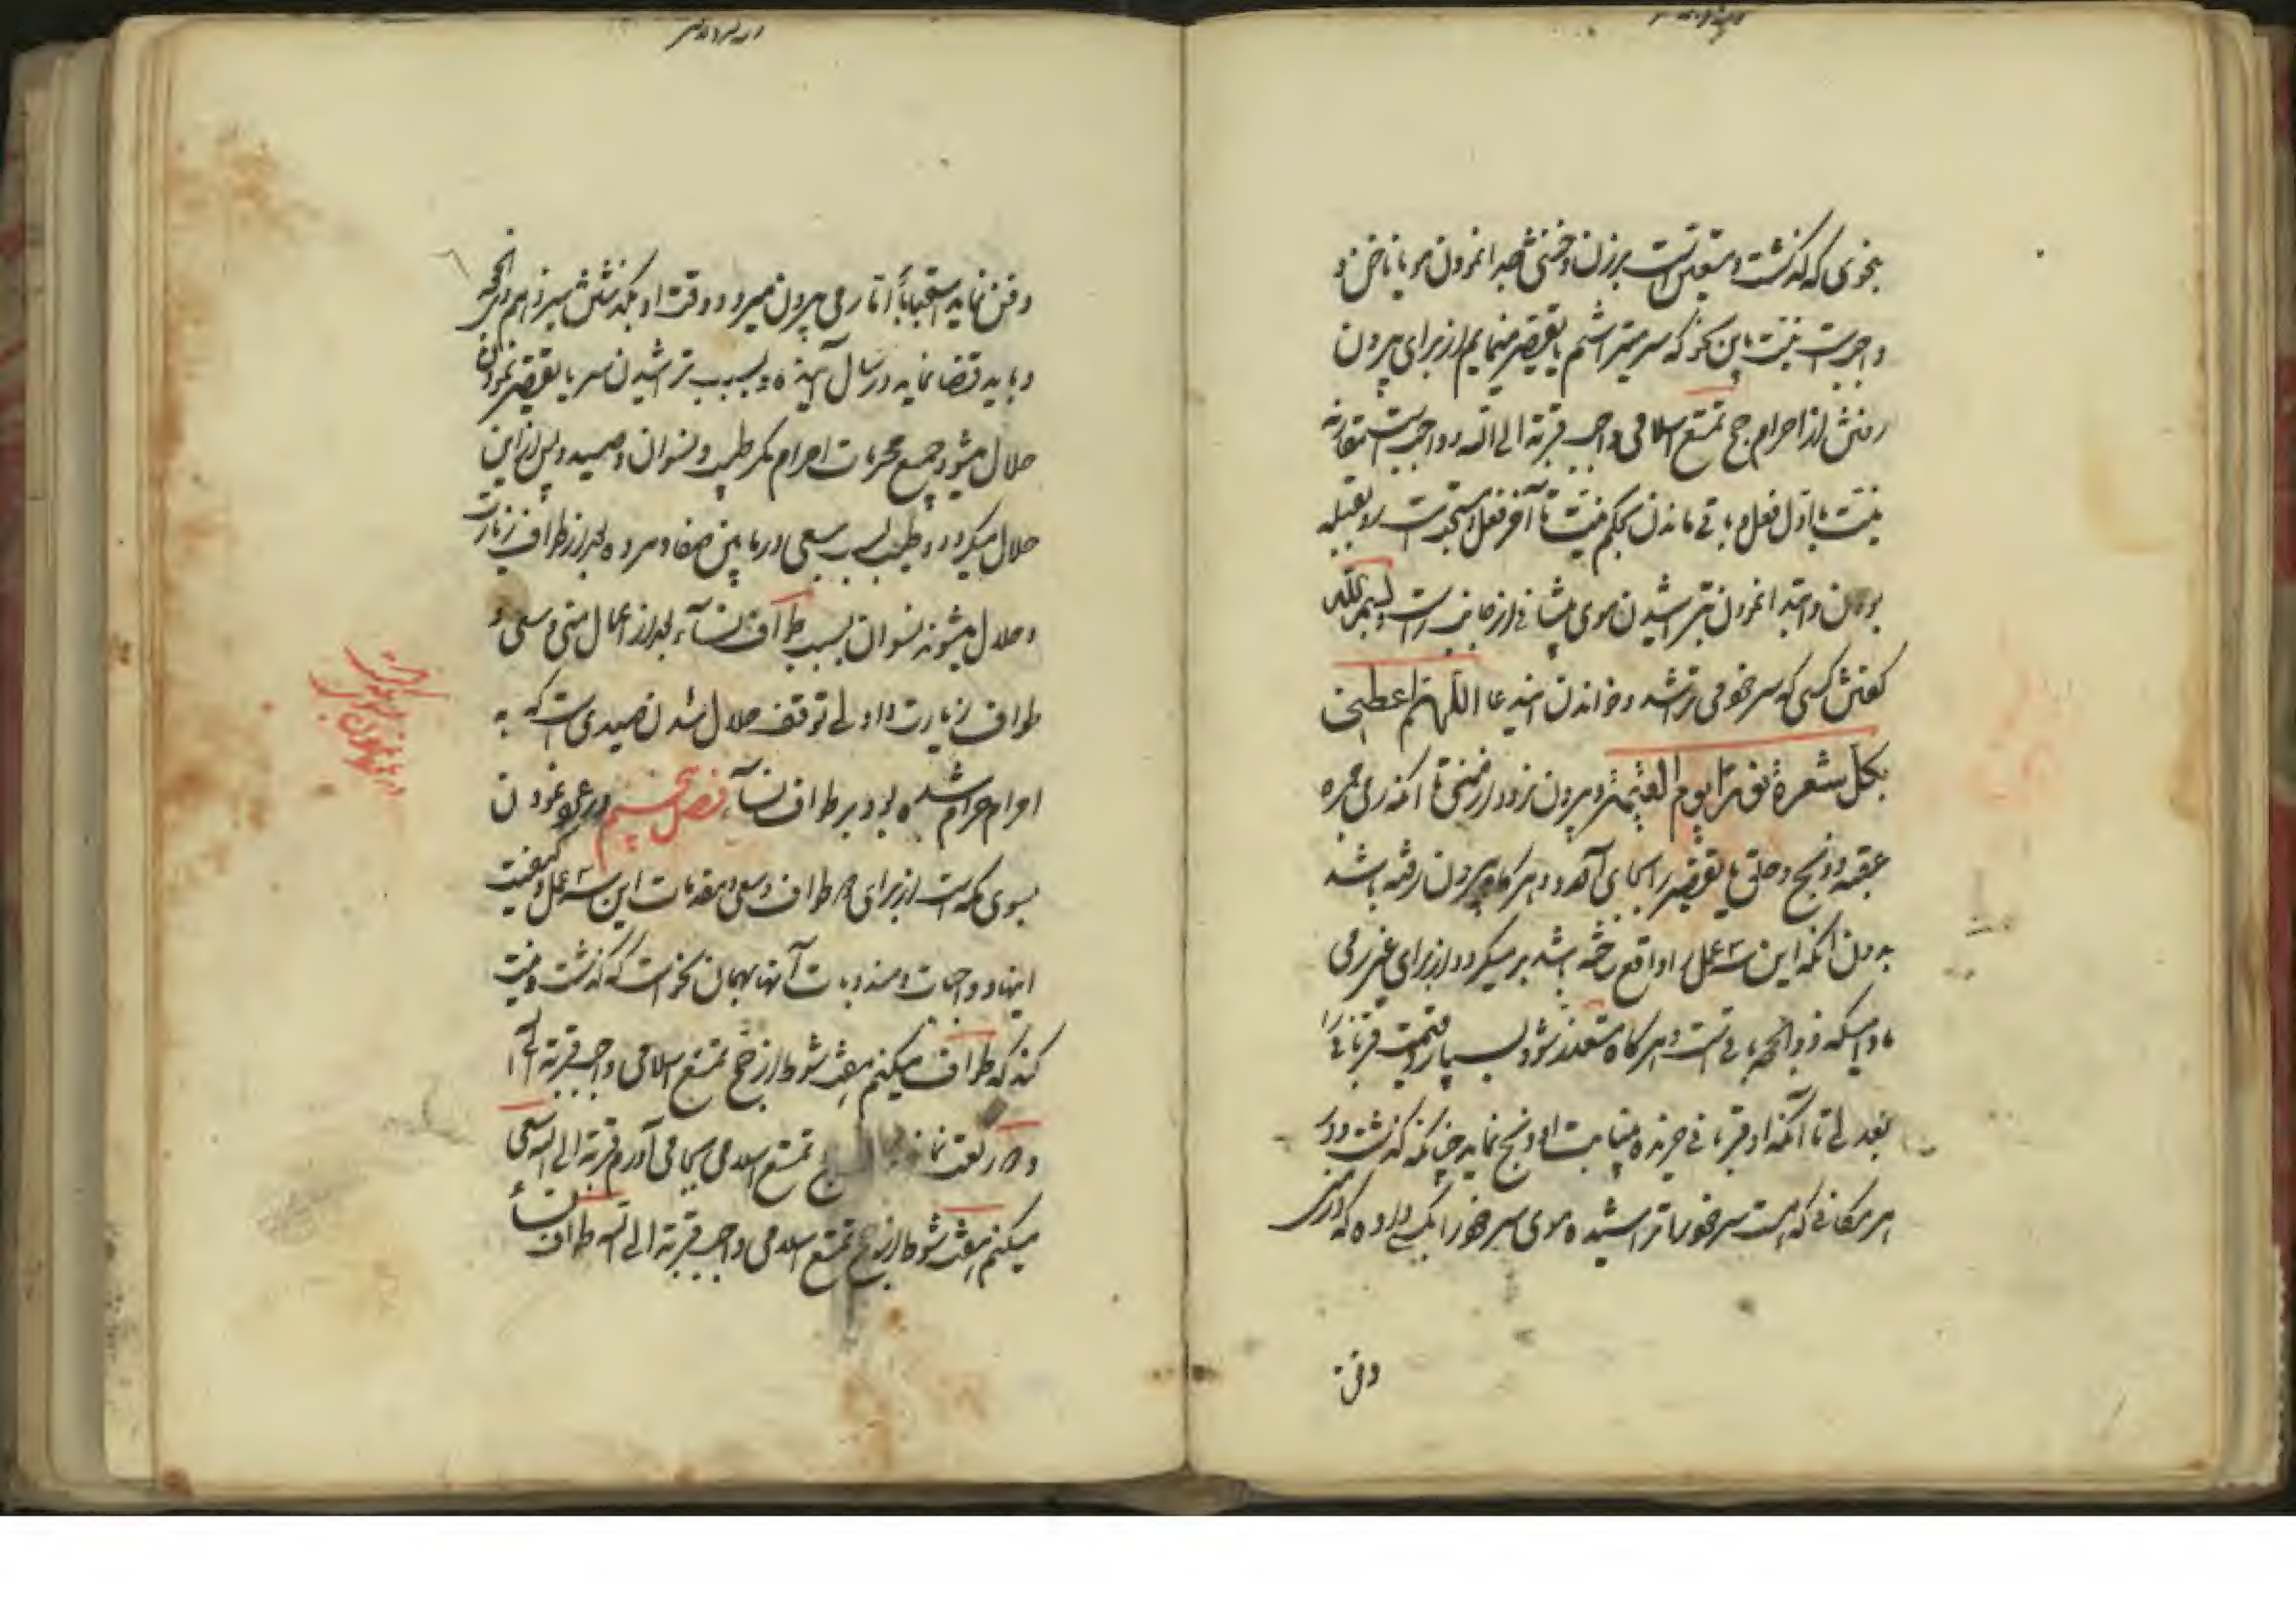 بنحوی که گذشت و متعین است بر زن و خنثی جدا نمودن مو یا ناخن و
واجب است نیت باین نحو که سر میتراشم یا تقصیر مینمایم از برای بیرون
رفتن از احرام حج تمتع اسلامی واجب قربة الی الله و واجب است مقارنه
نیت با اول فعل و باقی ماندن بحکم نیت تا آخر فعل و مستحب است رو بقبله
بودن و ابتدا نمودن بتراشیدن موی پیشانی از جانب راست و بسم الله
گفتن کسی که سر خود می تراشد و خواندن این دعا اللهم اعطنی
بکل شعرة نورا یوم القیمة و بیرون نرود از منی تا آنکه رمی جمره
عقبه و ذبح و حلق یا تقصیر را بجای آورد و هر گاه بیرون رفته باشد
بدون آنکه این سه عمل را واقع ساخته باشد بر میگردد از برای غیر رمی
مادامیکه ذو الحجه باقی است و هر گاه متعذر شود بسپارد قیمت قربانی را
بعدلی تا آنکه او قربانی خریده بنیابت او ذبح نماید چنانکه گذشت و در
هر مکانی که هست سر خود را تراشیده موی سر خود را بکسی داده که در منی
دفن
دفن نماید استحبابا اما رمی بیرون میرود وقت او بگذشتن سیزدهم ذی الحجه
و باید قضا نماید در سال آینده و بسبب تراشیدن سر یا تقصیر نمودن
حلال میشود جمیع محرمات احرام مگر طیب و نسوان و صید و پس از این
حلال میگردد طیب بسبب سعی در مابین صفا و مروه بعد از طواف زیارت
و حلال میشوند نسوان بسبب طواف نسآء بعد از اعمال منی و سعی و
طواف زیارت و اولی توقف حلال شدن صیدی است که به
احرام حرام شده بود بر طواف نسآء فصل پنجم در رجوع نمودن
بسوی مکه است از برای دو طواف و سعی و مقدمات این سه عمل و کیفیت
اینها و واجبات و مندوبات آنها بهمان نحو است که گذشت و نیت
کند که طواف میکنم هفت شوط از حج تمتع اسلامی واجب قربة الی الله
و دو رکعت نماز حج تمتع اسلامی بجا می آورم قربة الی الله و سعی
میکنم هفت شوط از حج تمتع اسلامی واجب قربة الی الله و طواف نسآء